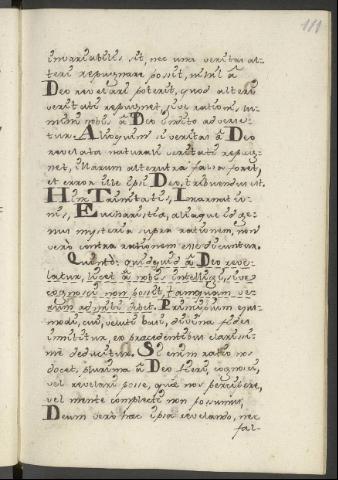 111
invariabilis sit, nec uni veritas al-
teri repugnare possit, nihil à
Deo revelari poterit, quod alteri
veritati repugnet, sive rationis lu-
mini nobis à Deo indito adverse-
tur. Alioquin si veritas à Deo
revelata naturali veritati repug-
net, illarum alterutra falsa foret,
et error ille ipsi Deo, tribuendus est.
Hinc Trinitatis, Incarnatio-
nis, Eucharistia, aliaque id ge-
nus mysteria supra rationem, non
vero contra rationem esse dicuntur.
Quinto: quidquid à Deo reve-
latur, licet à nobis intelligi, sive
cognosci non possit, tamquam ve-
rum admitti debet. Principium ejus-
modi, cui, veluti basi, divina fides
innititur, ex praecedentibus clarissi-
me deducitur. Si enim ratio nos
docet, plurima à Deo fieri, cognosci,
vel revelari posse, quae nos percipere,
vel mente complecti non possumus,
Deum vero haec ipsa revelando, nec
fal-